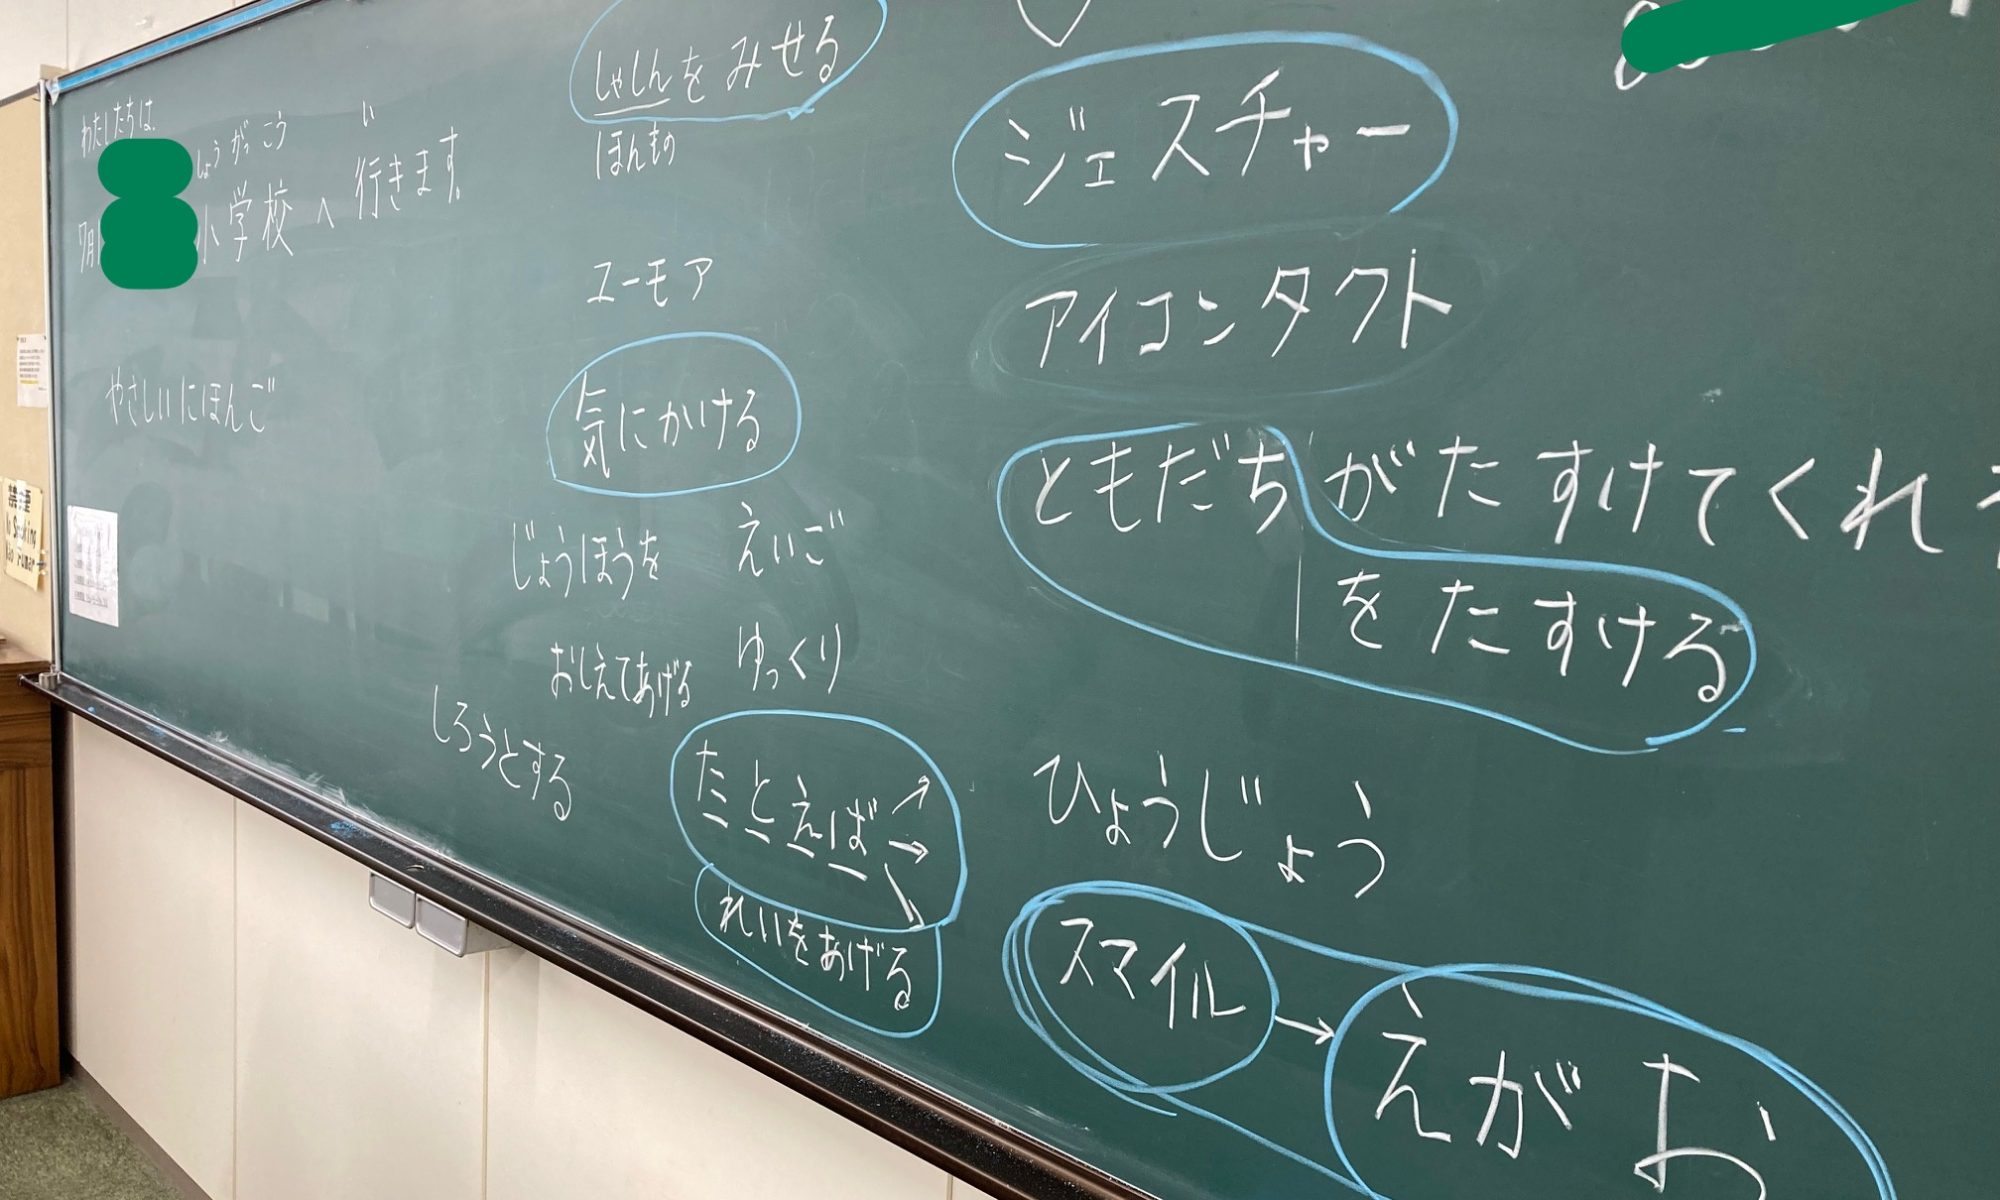 わたしたちは、
しょうがっこう い
7月 小学校へ行きます。
やさしいにほんご
しゃしんをみせる
ほんもの
ユーモア
気にかける
じょうほうを
おしえてあげる
しろうとする
えいご
ゆっくり
たとえば
れいをあげる
ジェスチャー
アイコンタクト
ともだちがたすけてくれ
をたすける
ひょうじょう
スマイル→えがお
No Smoking